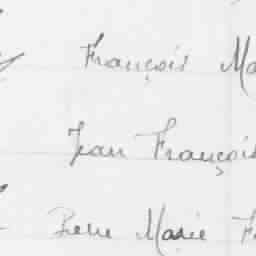 François Ma
Jean François
Pierre Marie F